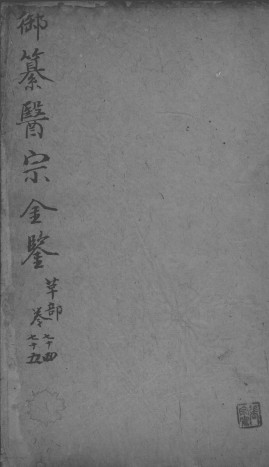 御纂醫宗金鑒
草部
卷七十四
七十五